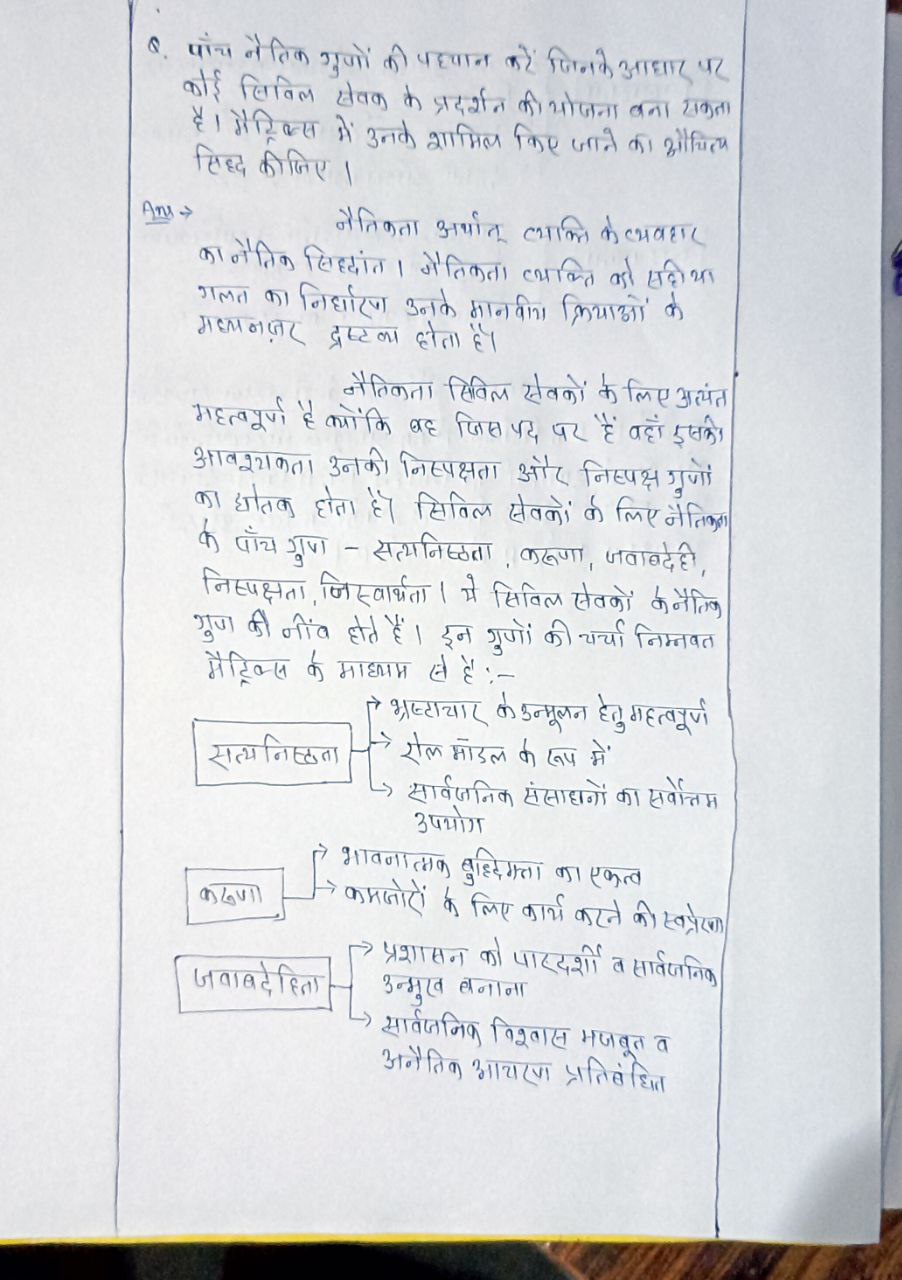 Q. पाँच नैतिक गुणों की पहचान करें जिनके आधार पर
कोई सिविल सेवक के प्रदर्शन की योजना बना सकता
है। मैट्रिक्स में उनके शामिल किए जाने का औचित्य
सिद्ध कीजिए।
Ans →
नैतिकता अर्थात् व्यक्ति के व्यवहार
का नैतिक सिद्धांत। नैतिकता व्यक्ति को सही या
गलत का निर्धारण उनके मानवीय क्रियाओं के
मध्यनज़र द्रष्टव्य होता है।
नैतिकता सिविल सेवकों के लिए अत्यंत
महत्वपूर्ण है क्योंकि वह जिस पद पर हैं वहाँ इसकी
आवश्यकता उनकी निस्पक्षता और निस्पक्ष गुणों
का द्योतक होता है। सिविल सेवकों के लिए नैतिकता
के पाँच गुण - सत्यनिष्ठता, करूणा, जवाबदेही,
निस्पक्षता, निस्वार्थता। ये सिविल सेवकों के नैतिक
गुण की नींव होते हैं। इन गुणों की चर्चा निम्नवत
मैट्रिक्स के माध्यम से है :-
सत्यनिष्ठता
→ भ्रष्टाचार के उन्मूलन हेतु महत्वपूर्ण
→ रोल मॉडल के रूप में
→ सार्वजनिक संसाधनों का सर्वोत्तम
उपयोग
करूणा
→ भावनात्मक बुद्धिमता का एकत्व
→ कमजोरों के लिए कार्य करने की स्वप्रेरणा
जवाबदेहिता
→ प्रशासन को पारदर्शी व सार्वजनिक
उन्मुख बनाना
→ सार्वजनिक विश्वास मजबूत व
अनैतिक आचरण प्रतिबंधित